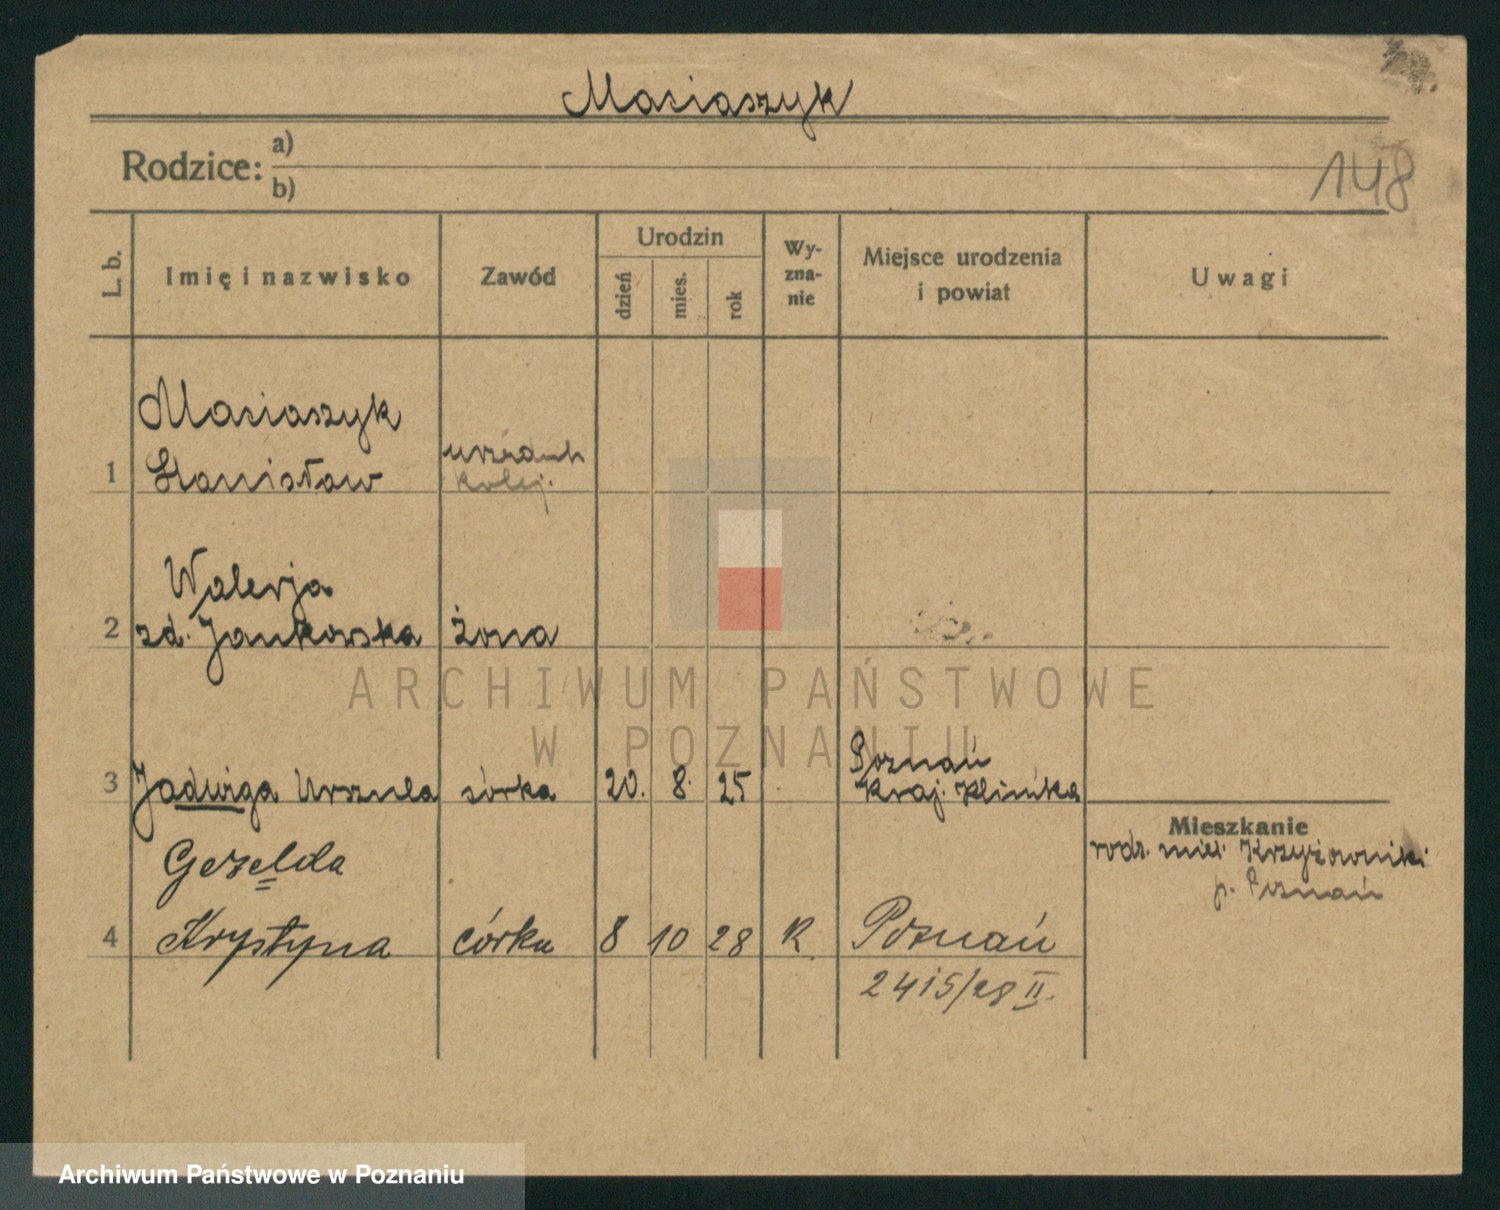 Maciaszyk
Rodzice: a)
b)
148
L. b.
Imię i nazwisko
Zawód
Urodzin
dzień
mies.
rok
Wy-
zna-
nie
Miejsce urodzenia
i powiat
Uwagi
Maciaszyk
1 Stanisław
urzędnik
kolej.
Walerja
2 zd. Jankowska żona
3 Jadwiga Urszula córka 20. 8. 25
Poznań
Kraj. Klinika
Mieszkanie
rodz. miel. Krzyżowniki
p. Poznań
Gezelda
4 Krystyna córka 8 10 28 R. Poznań
2415/28 II.
ARCHIWUM PAŃSTWOWE
W POZNANIU
Archiwum Państwowe w Poznaniu